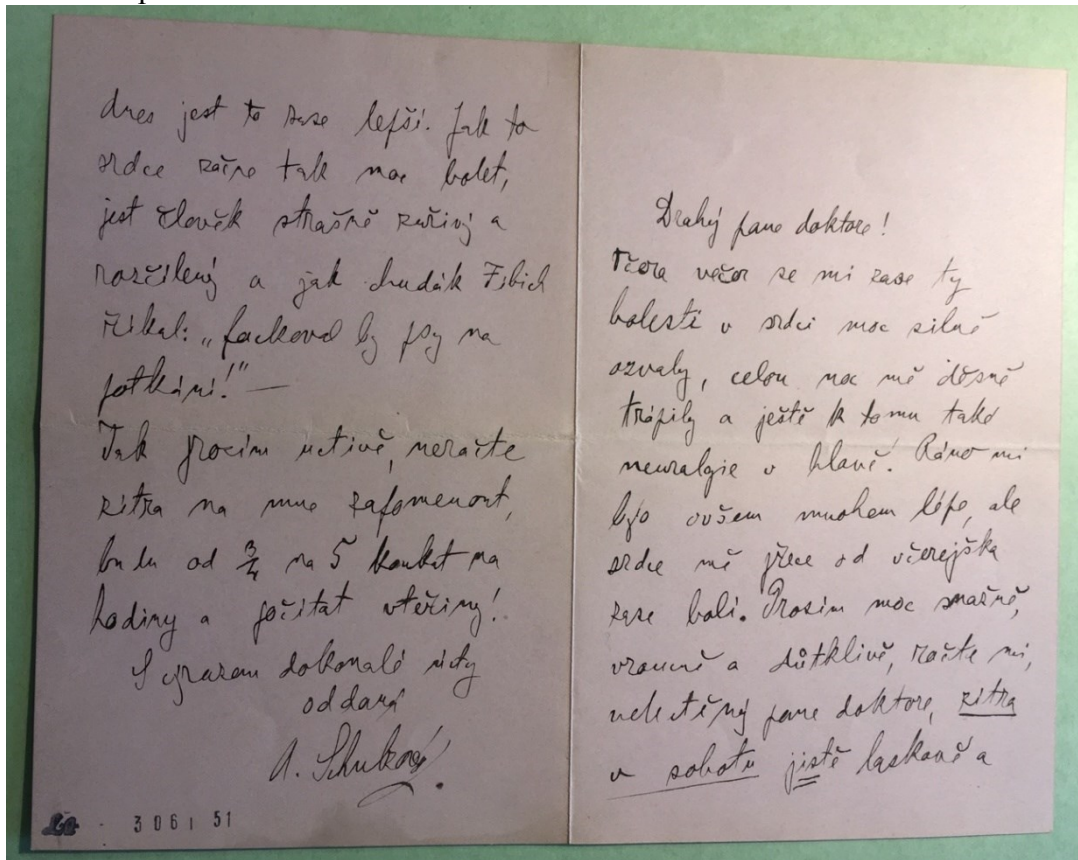 dnes jest to zase lepší. Jak to
srdce začne tak moc bolet,
jest člověk strašně zuřivý a
rozčilený a jak chudák Fibich
říkal: „fackoval by psy na
potkání!" —
Tak prosím uctivě, neračte
zítra na mne zapomenout,
budu od ¾ na 5 koukat na
hodiny a počítat vteřiny!
S výrazem dokonalé úcty
oddaná
A. Schulzová.
3061 51
Drahý pane doktore!
Včera večer se mi zase ty
bolesti v srdci moc silně
ozvaly, celou noc mě děsně
trápily a ještě k tomu také
neuralgie v hlavě. Ráno mi
bylo ovšem mnohem lépe, ale
srdce mě přece od včerejška
zase bolí. Prosím moc snažně,
vroucně a důtklivě, račte mi,
velectěný pane doktore, zítra
v sobotu jistě laskavě a